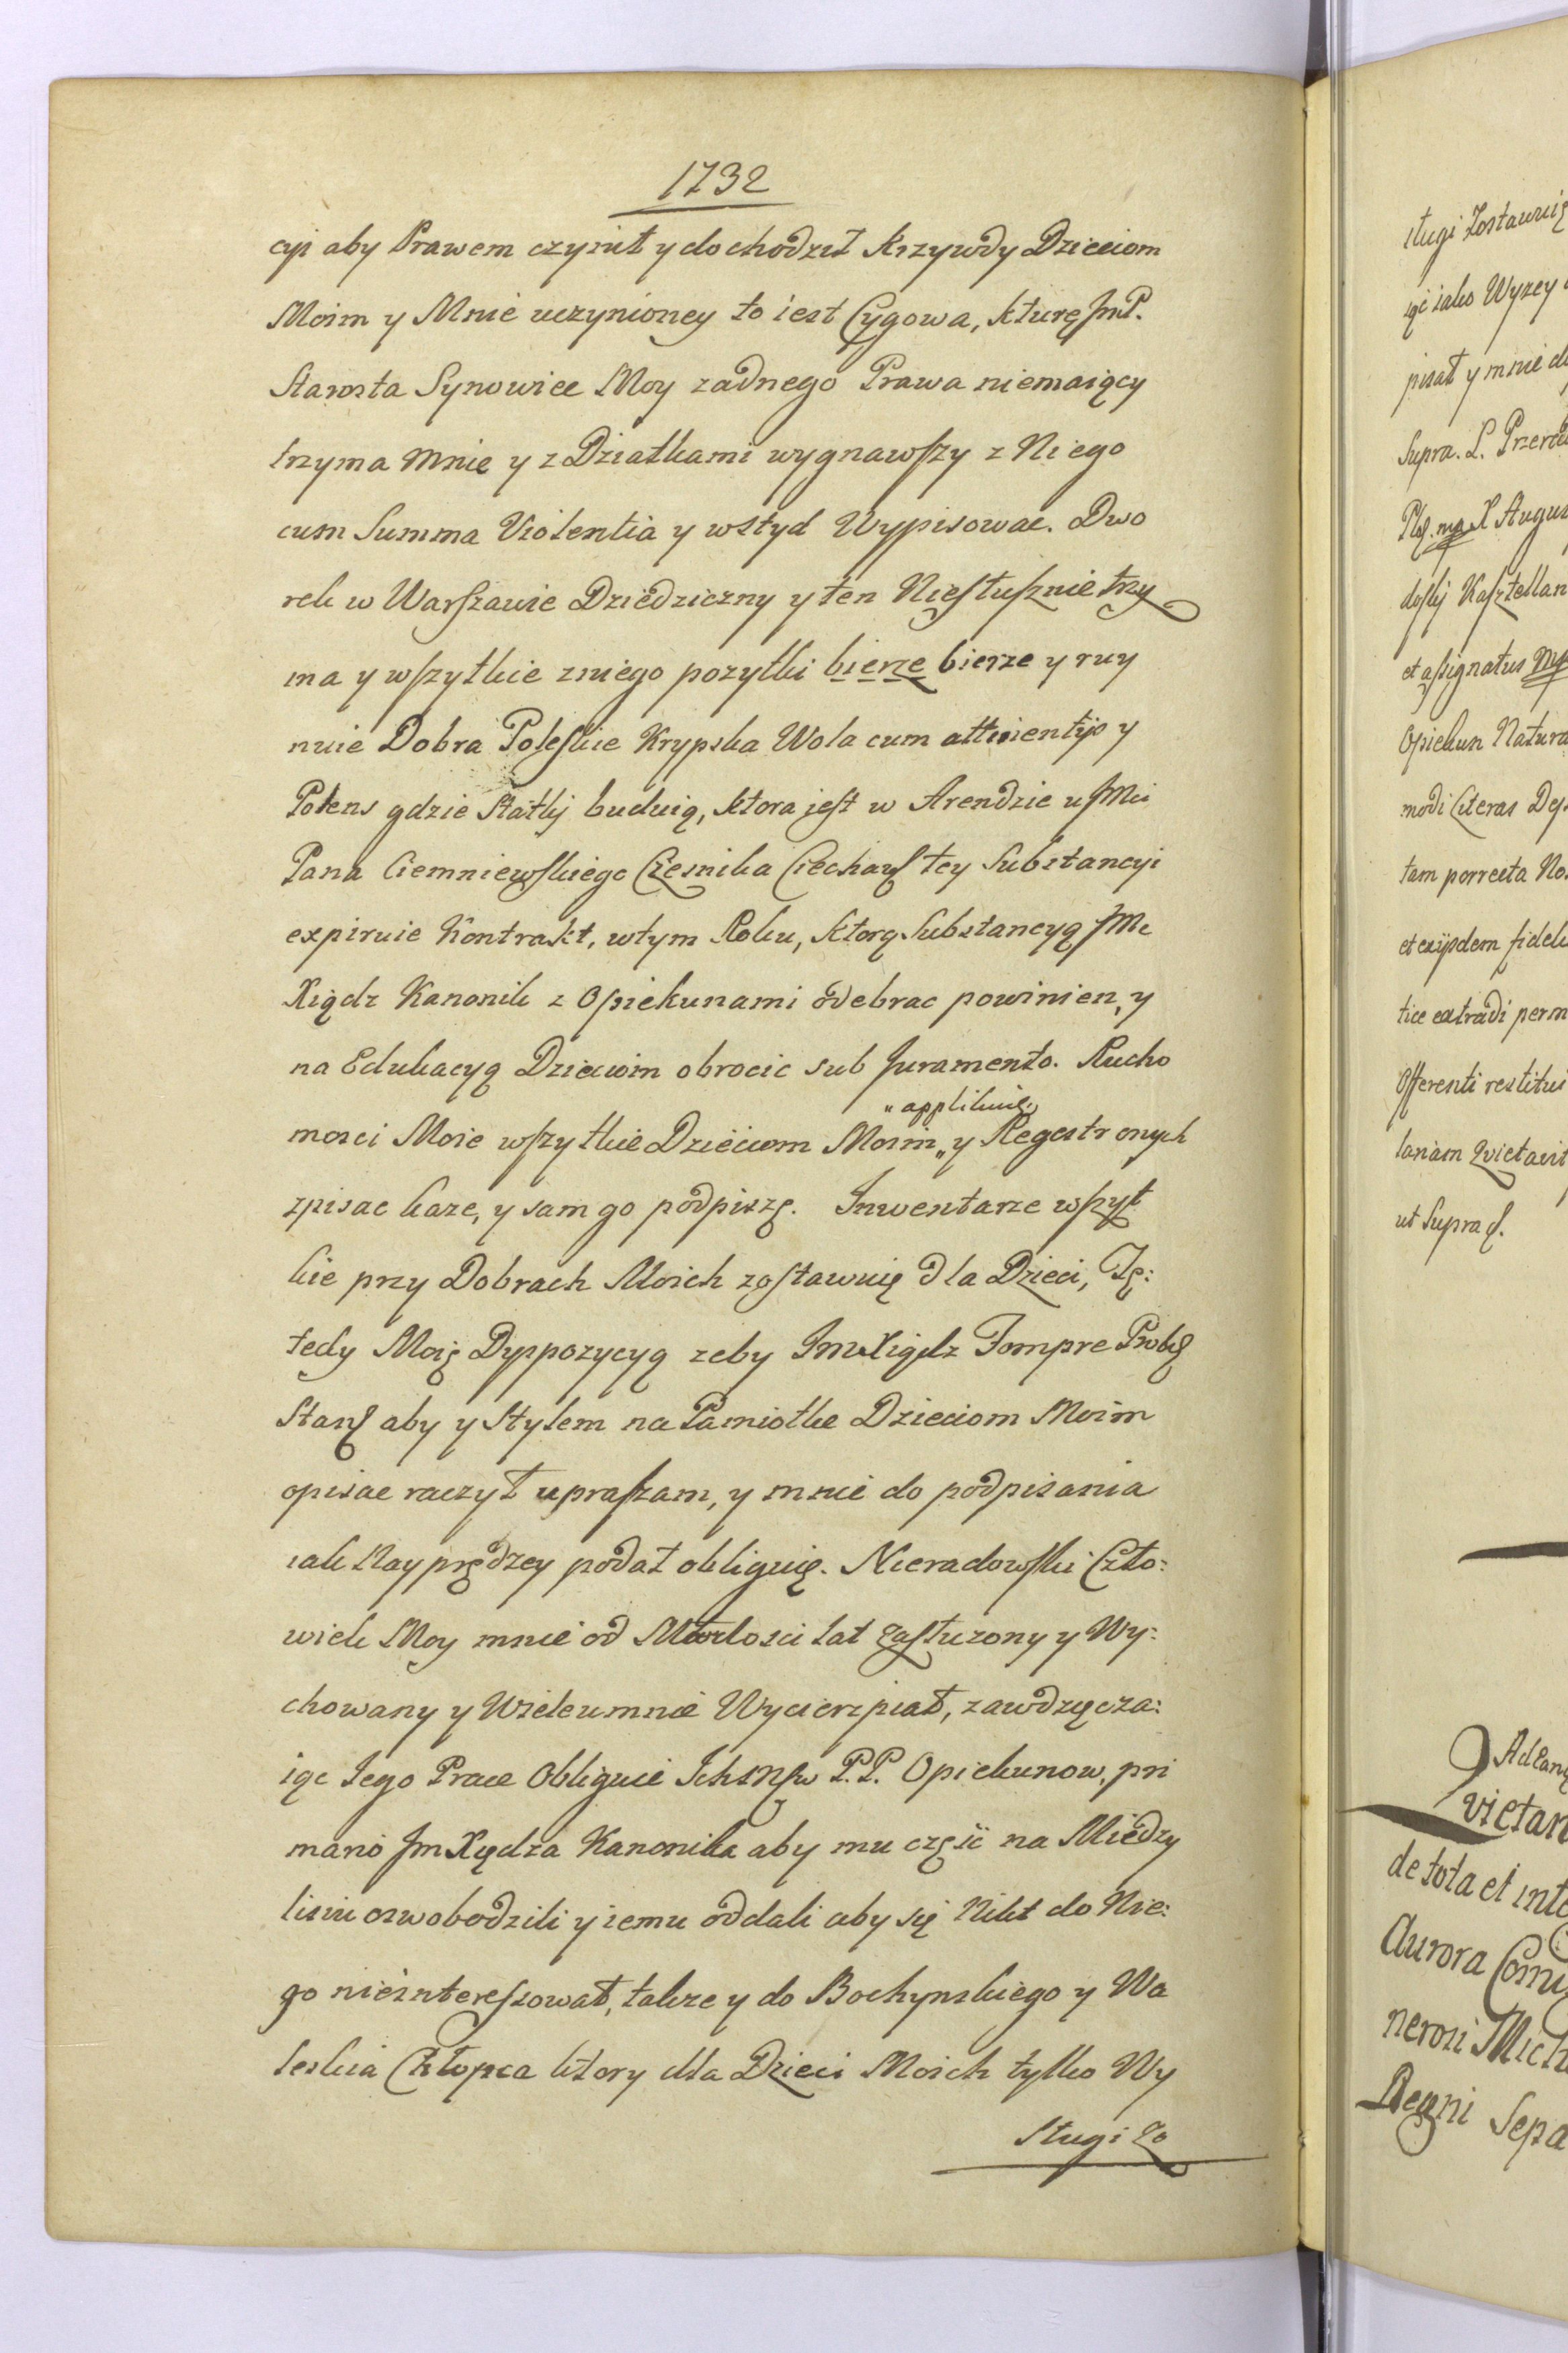 1732
cyi aby Prawem czynił y dochodził Krzywdy Dzieciom
Moim y Mnie uczynioney to iest Cygowa, kturę JmP.
Starosta Synowiec Moy zadnego Prawa niemaiący
trzyma mnie y z Dziatkami wygnawszy z Niego
cum Summa Violentia y wstyd Wypisowac. Dwo
rek w Warszawie Dziedziczny y ten Niesłusznie trzy
ma y wszytkie zniego pozytki bierze bierze y ruy
nuie Dobra Poleskie Krypska Wola cum attinentijs y
Potens gdzie Statkj buduią, ktora jest w Arendzie u JMci
Pana Ciemniewskiego Czesnika Ciechan tey Substancyi
expiruie Kontrakt, wtym Roku, ktorą Substancyą JMc
Xiądz Kanonik z Opiekunami odebrac powinien, y
na Edukacyą Dzieciom obrocic sub Juramento. Rucho
„ applikuię „
mosci Moie wszytkie Dzieciom Moim „ y Regestr onych
zpisac kaze, y sam go podpiszę. Inwentarze wszyt
kie przy Dobrach Moich zostawuię dla Dzieci, Tę:
tedy Moię Dyspozycyą zeby Jmć Xiądz Fompre Prob
Stan aby y Stylem na Pamiotke Dzieciom Moim
opisac raczył upraszam, y mnie do podpisania
iak Nayprędzey podał obliguię. Nieradowski Czło:
wiek Moy mnie od Młodosci lat zasłuzony y Wy:
chowany y Wiele umnie Wycierpiał, zawdzięcza:
iąc Jego Prace Obliguie Ichmsw P.P. Opiekunow, pri
mario Jm Xiędza Kanonika aby mu częsć na Miedzy
lisiu oswobodzili y iemu oddali aby się Nikt do Nie:
go nieinteressował, takze y do Bochynskiego y Wa
leska Chłopca ktory dla Dzieci Moich tylko Wy
Sługi Zo
sługi Zostawuię
iąc iako Wyzey
pisał y mnie do
Supra. L.
X August
Kasztellan
et assignatus
Opiekun Natura
modi Literas
tam porrecta No
et eaijsdem fidele
tice extradi perm
Offerenti restitui
lariam Quietavit
ut Supra.
vietar
de tota et inte
Aurora
neroni Mich
Regni Sepa